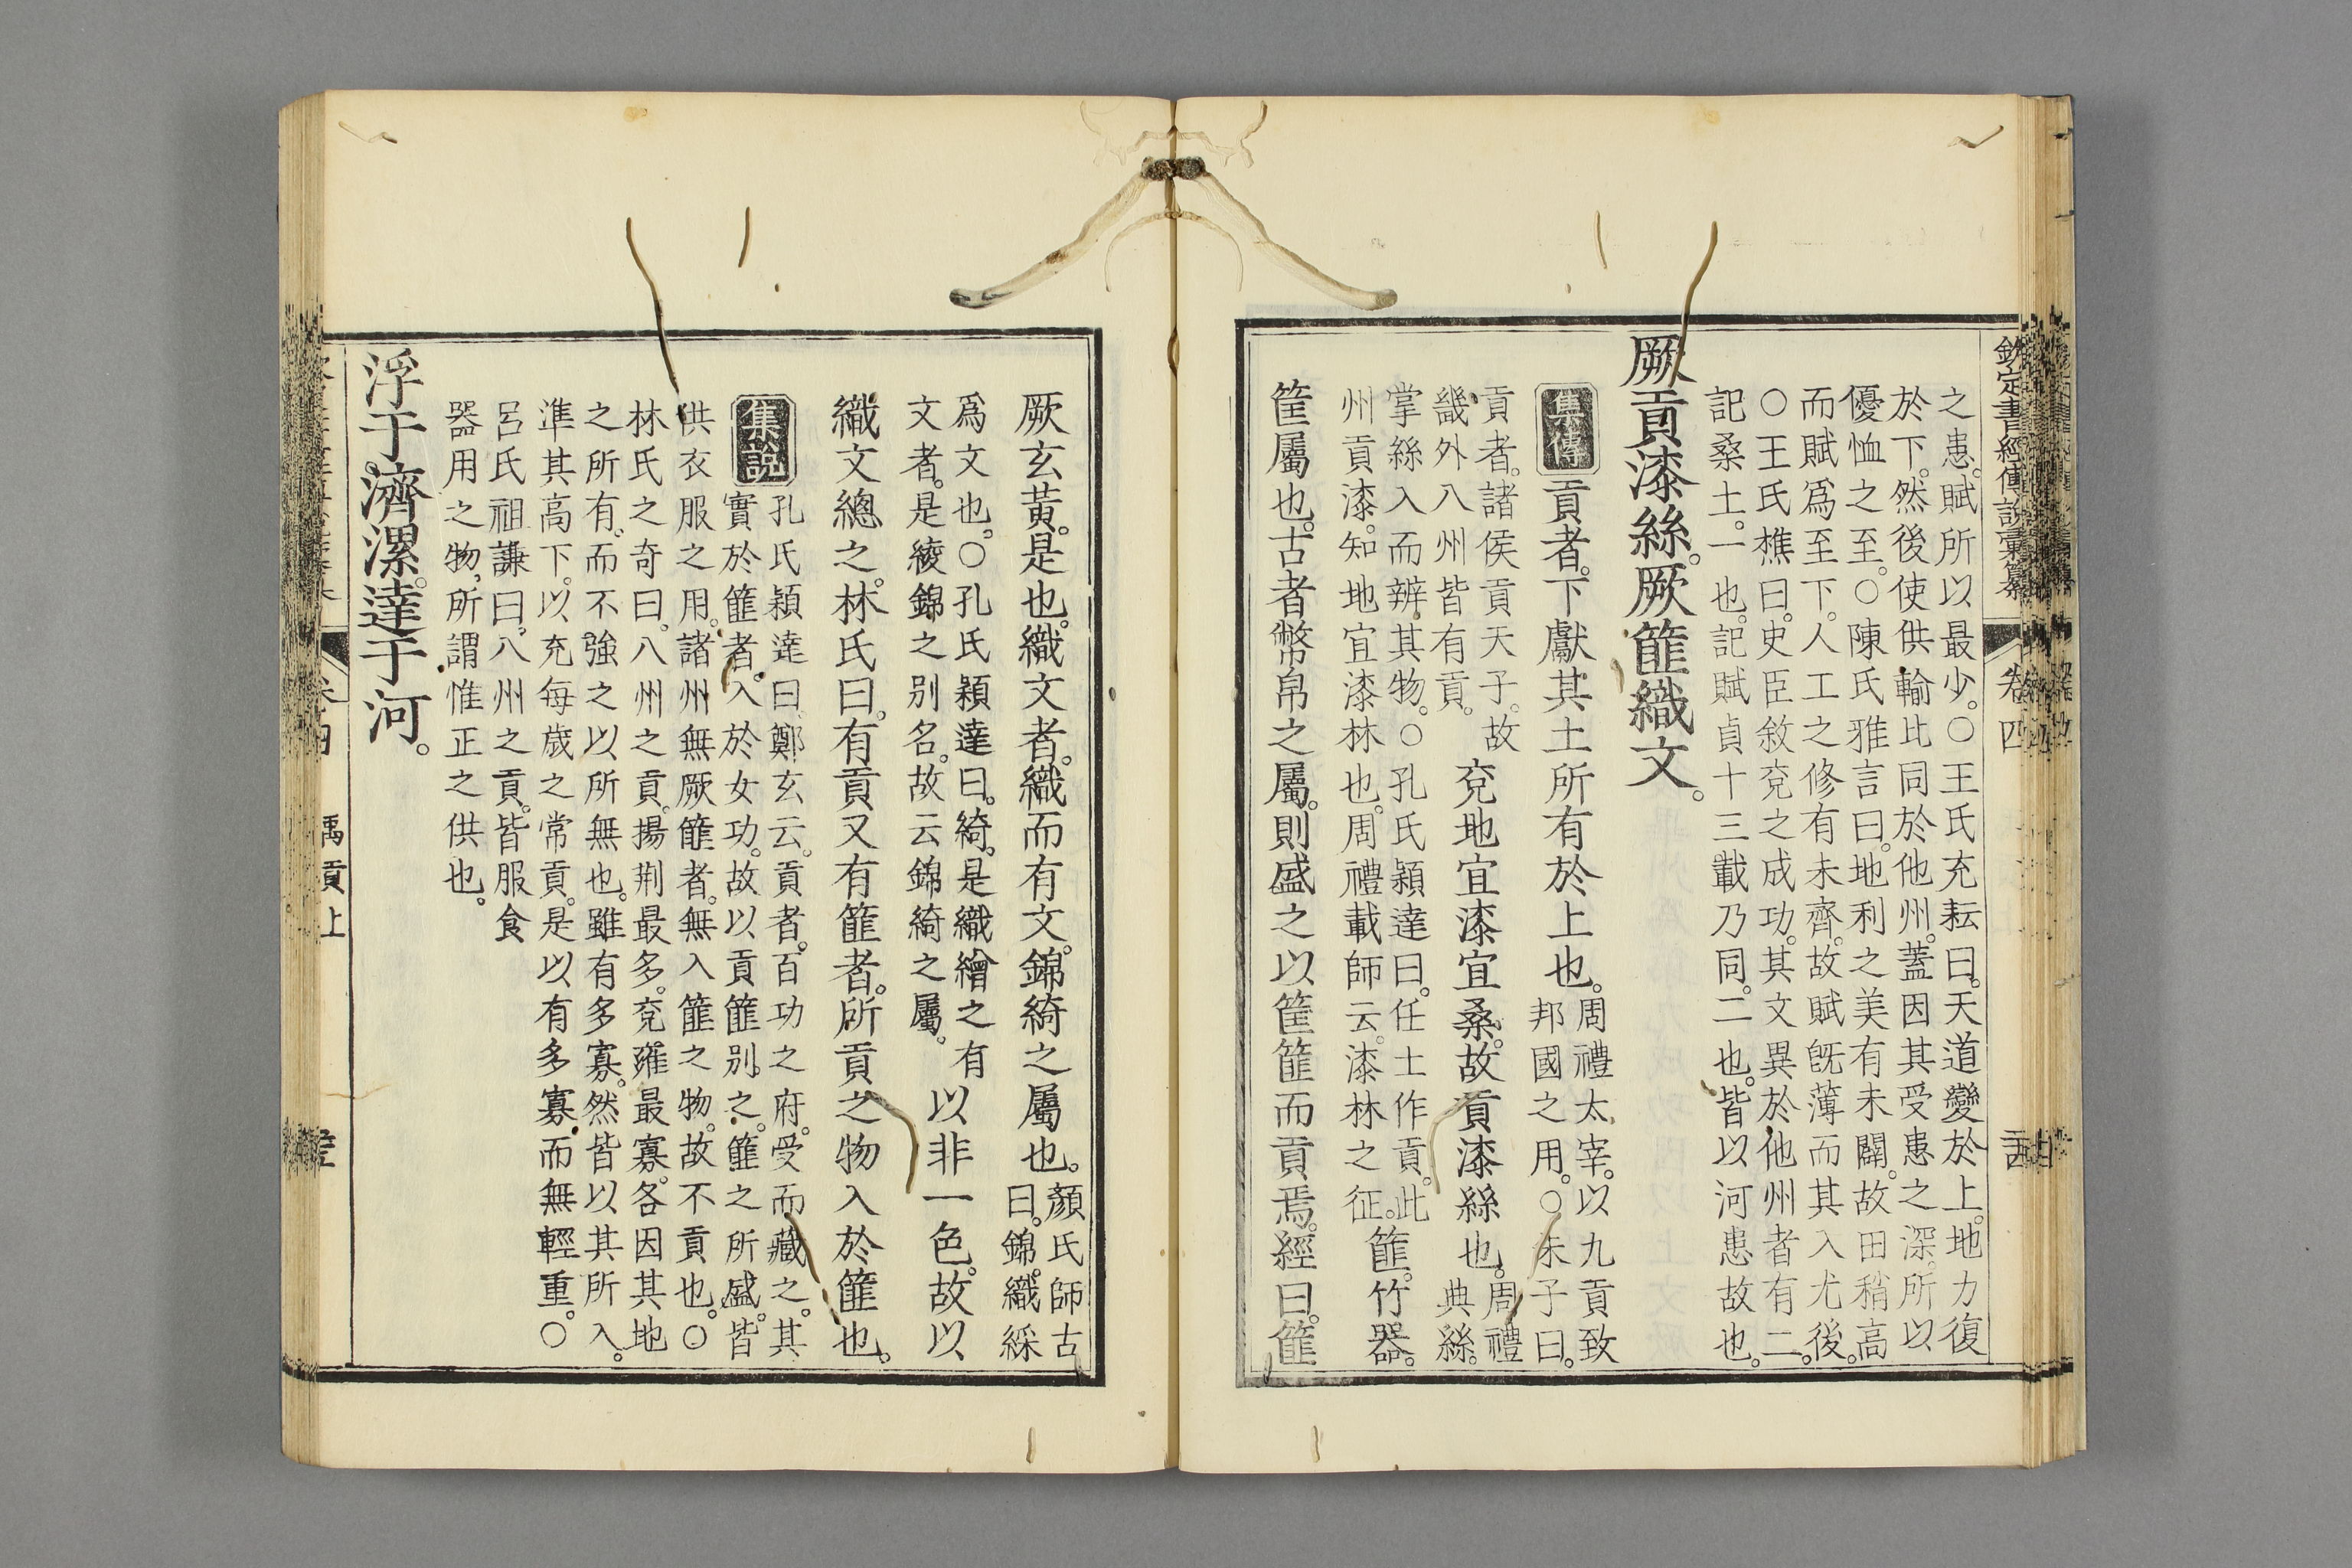 欽定書經傳說彙纂 卷四
之患。賦所以最少。○王氏充耘曰。天道變於上。地力復
於下。然後使供輸比同於他州。蓋因其受患之深。所以
優恤之至。○陳氏雅言曰。地利之美有未闢。故田稍高
而賦爲至下。人工之修有未齊。故賦旣薄而其入尤後。
○王氏樵曰。史臣敘兗之成功。其文異於他州者有二。
記桑土。一也。記賦貞十三載乃同。二也。皆以河患故也。
厥貢漆絲。厥篚織文。
集傳 貢者。下獻其土所有於上也。周禮太宰。以九貢致
邦國之用。○朱子曰。
貢者。諸侯貢天子。故
畿外八州皆有貢。兗地宜漆宜桑。故貢漆絲也。周禮
典絲。
掌絲入而辨其物。○孔氏穎達曰。任土作貢。此
州貢漆。知地宜漆林也。周禮載師云。漆林之征。篚。竹器。
筐屬也。古者幣帛之屬。則盛之以筐篚而貢焉。經曰。篚
厥玄黃。是也。織文者。織而有文。錦綺之屬也。顏氏師古
曰。錦。織綵
爲文也。○孔氏穎達曰。綺。是織繒之有
文者。是綾錦之別名。故云錦綺之屬。以非一色。故以
織文總之。林氏曰。有貢又有篚者。所貢之物入於篚也。
集說 孔氏穎達曰。鄭玄云。貢者。百功之府。受而藏之。其
實於篚者。入於女功。故以貢篚別之。篚之所盛。皆
供衣服之用。諸州無厥篚者。無入篚之物。故不貢也。○
林氏之奇曰。八州之貢。揚荆最多。兗雍最寡。各因其地
之所有。而不強之以所無也。雖有多寡。然皆以其所入。
準其高下。以充每歲之常貢。是以有多寡。而無輕重。○
呂氏祖謙曰。八州之貢。皆服食
器用之物。所謂惟正之供也。
浮于濟漯。達于河。
禹貢上